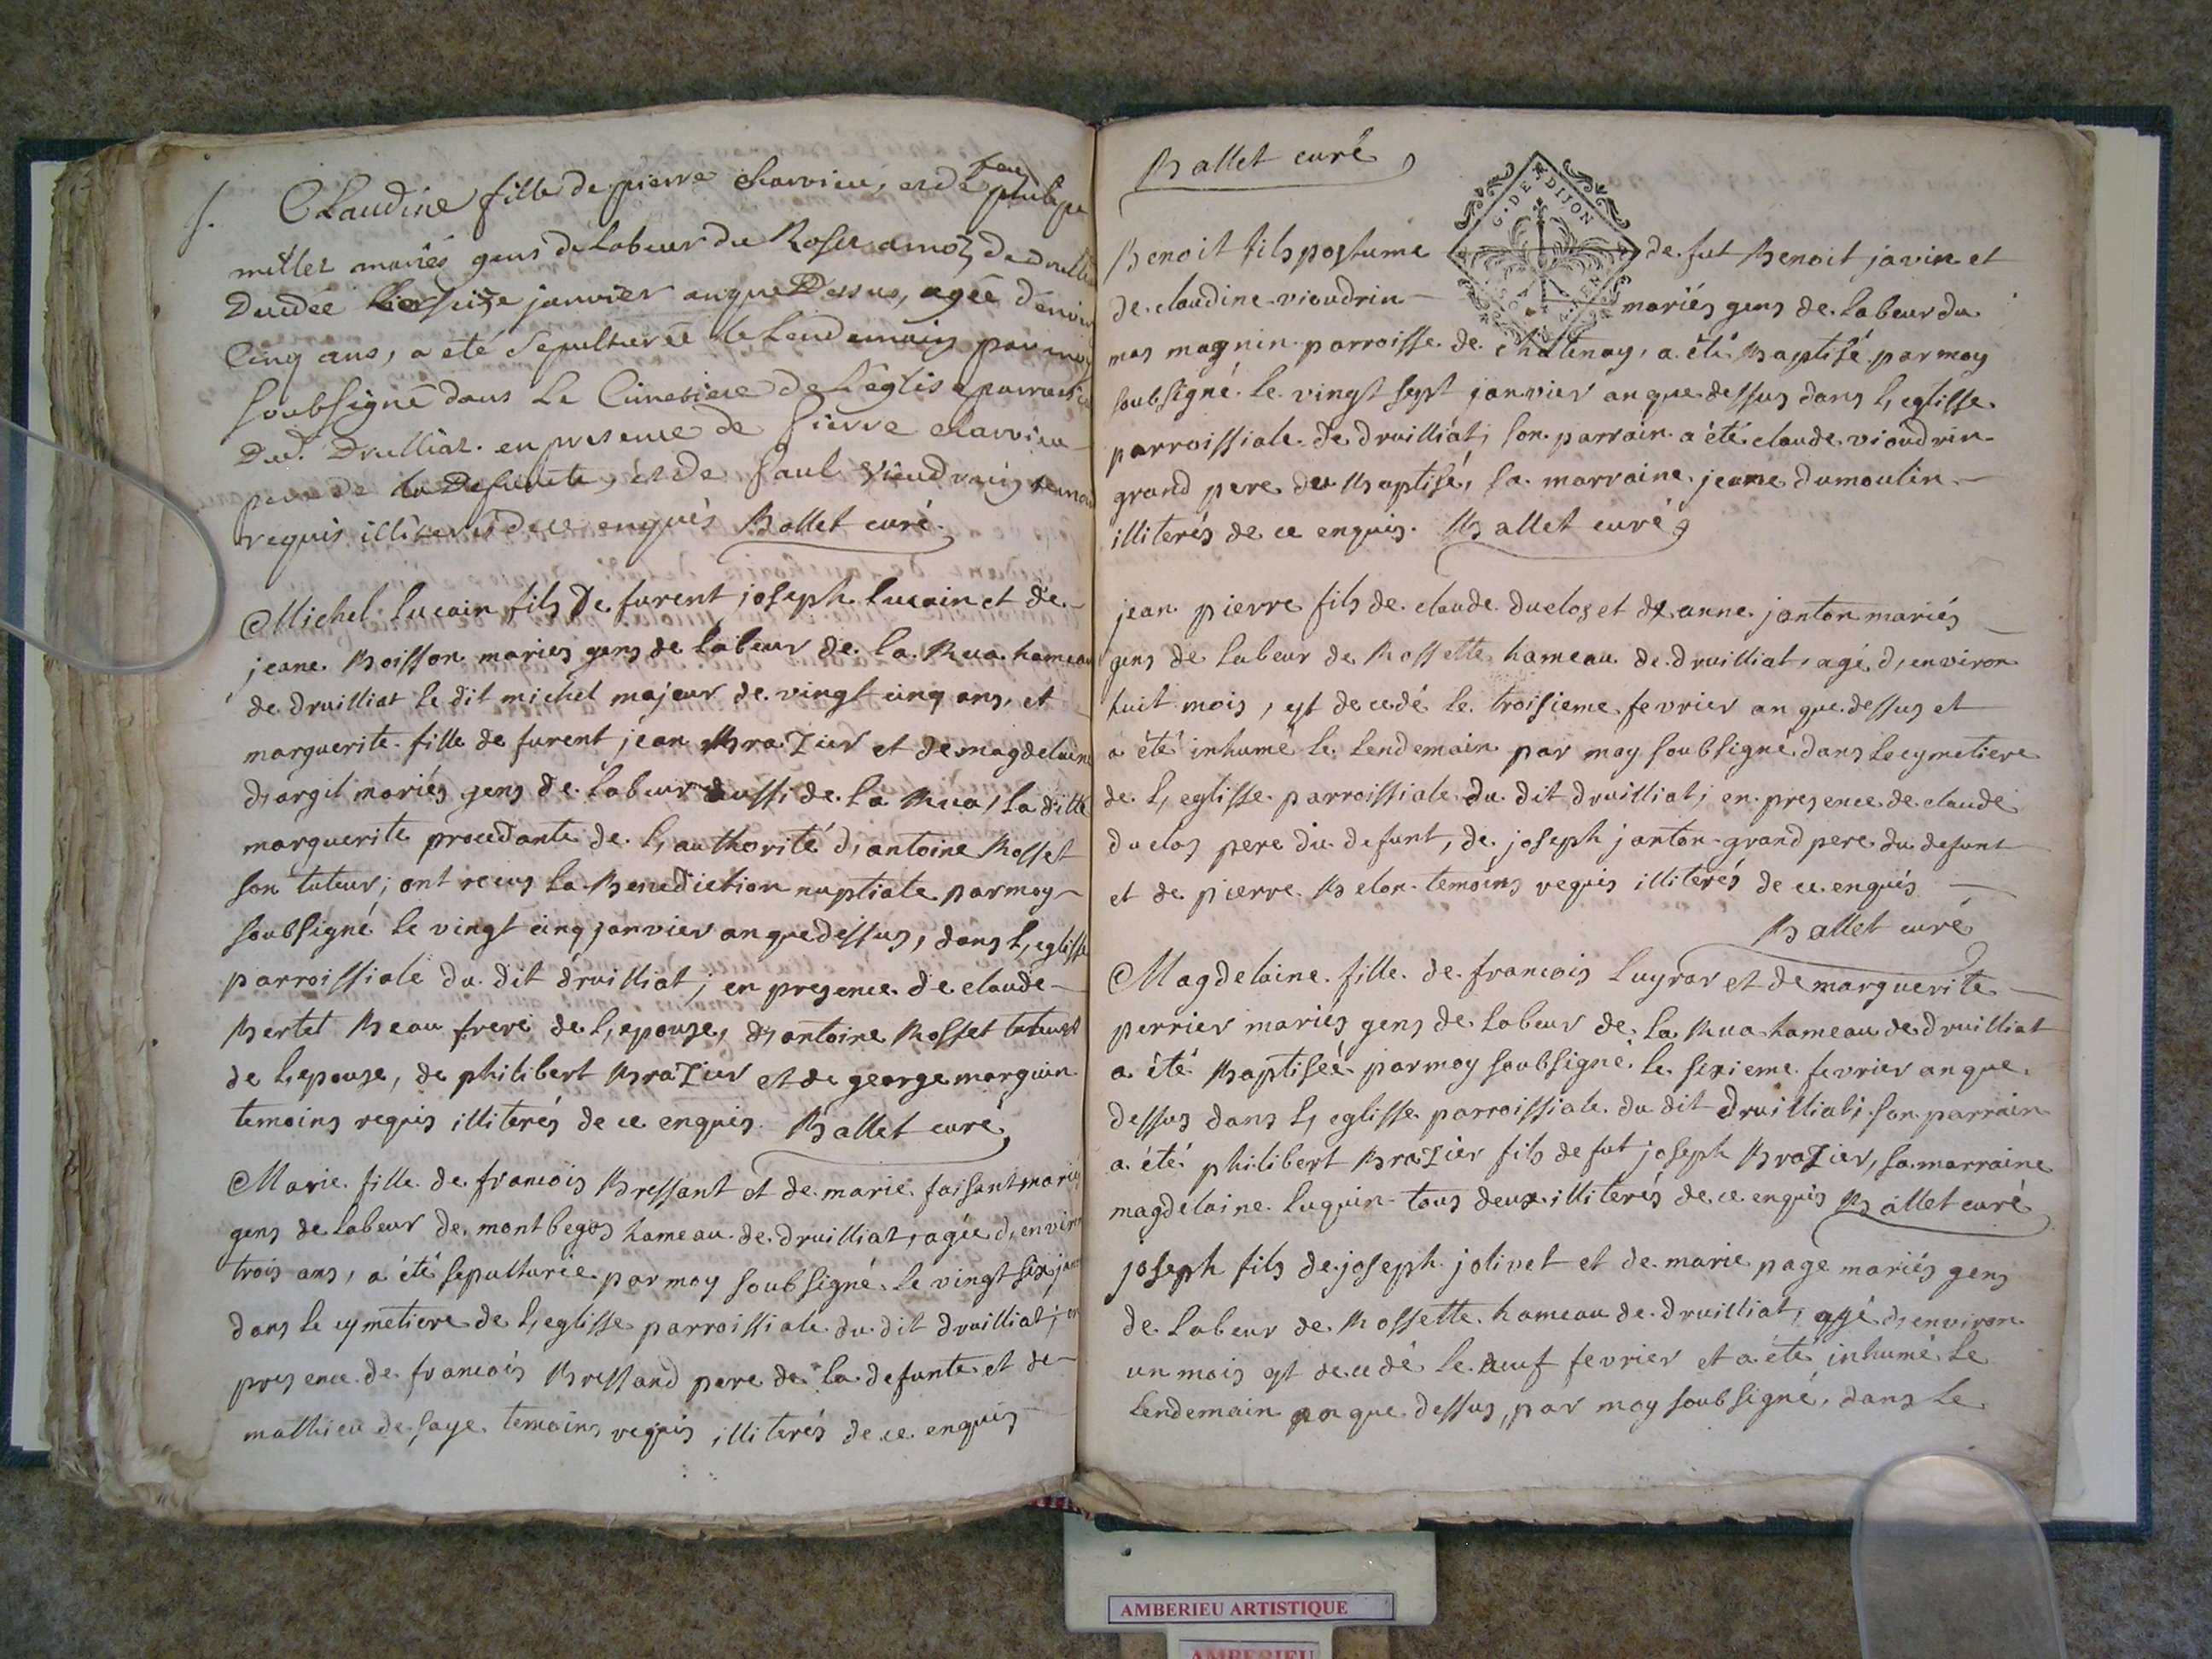 f. Claudine fille de pierre charvieu, et de feu philipe
millet mariés gens de labeur du Rosset
Decedée le seize janvier anque Dessus, agée d'environ
Cinq ans, a été sepulturée le lendemain par moy
soubsigné dans le Cimetiere de L'église parroissi
Dud. Druilliat. en presence de Pierre charvieu
pere de la Defunte, et de Paul Vieudrin
requis illiterés de ce enquis Ballet curé.
Michel Lucain fils De furent joseph Lucain et de
jeane Boisson mariés gens de labeur de la Rua hameau
de druilliat le dit michel majeur de vingt cinq ans, et
marguerite fille de furent jean BraZier et de magdelaine
d,argil mariés gens de labeur aussi de la Rua, la ditte
marguerite procedante de l,authorité d,antoine Rosset
son tuteur; ont recus la Benediction nuptiale par moy
soubsigné le vingt cinq janvier an que dessus, dans l,eglisse
parroissiale du dit druilliat; en presence de claude
Bertet Beau frere de l,epouse, d,antoine Rosset tuteur
de l,epouse, de philibert BraZier et de george morguin
temoins requis illiterés de ce enquis. Ballet curé,
Marie fille de francois Bressant et de marie faisant mariés
gens de labeur de montbegos hameau de druilliat, agée d,environ
trois ans, a été sepulturée par moy soubsigné le vingt six janv
dans le cymetiere de l,eglisse parroissiale du dit druilliat; en
presence de francois Bressand pere de la defunte et de
mathieu de faye temoins requis illiterés de ce enquis
Ballet curé,
G. DE DIJON
Benoit fils postume de fut Benoit javin et
de claudine vieudrin mariés gens de labeur du
mas magnin parroisse de chatenay, a été Baptisé par moy
soubsigné le vingt sept janvier an que dessus dans l,eglisse
parroissiale de druilliat; son parrain a été claude vioudrin
grand pere du Baptisé, sa marraine jeane dumoulin
illiterés de ce enquis. Ballet curé,
jean pierre fils de claude duclos et de anne janton mariés
gens de labeur de Rossette hameau de druilliat, agé d,environ
huit mois, est decedé le troisieme fevrier an que dessus et
a été inhumé le lendemain par moy soubsigné dans le cymetiere
de l,eglisse parroissiale du dit druilliat; en presence de claude
duclos pere du defunt, de joseph janton grand pere du defunt
et de pierre Belon temoins requis illiterés de ce enquis
Ballet curé
Magdelaine fille de francois Luyrar et de marguerite
perrier mariés gens de labeur de la Rua hameau de druilliat
a été Baptiseé par moy soubsigné le sixieme fevrier an que
dessus dans l,eglisse parroissiale du dit druilliat; son parrain
a été philibert BraZier fils de fut joseph BraZier, sa marraine
magdelaine luquin tous deux illiterés de ce enquis Ballet curé
joseph fils de joseph jolivet et de marie page mariés gens
de labeur de Rossette hameau de druilliat, agé d,environ
un mois est decedé le neuf fevrier et a été inhumé le
lendemain an que dessus, par moy soubsigné, dans le
AMBERIEU ARTISTIQUE
AMBERIEU